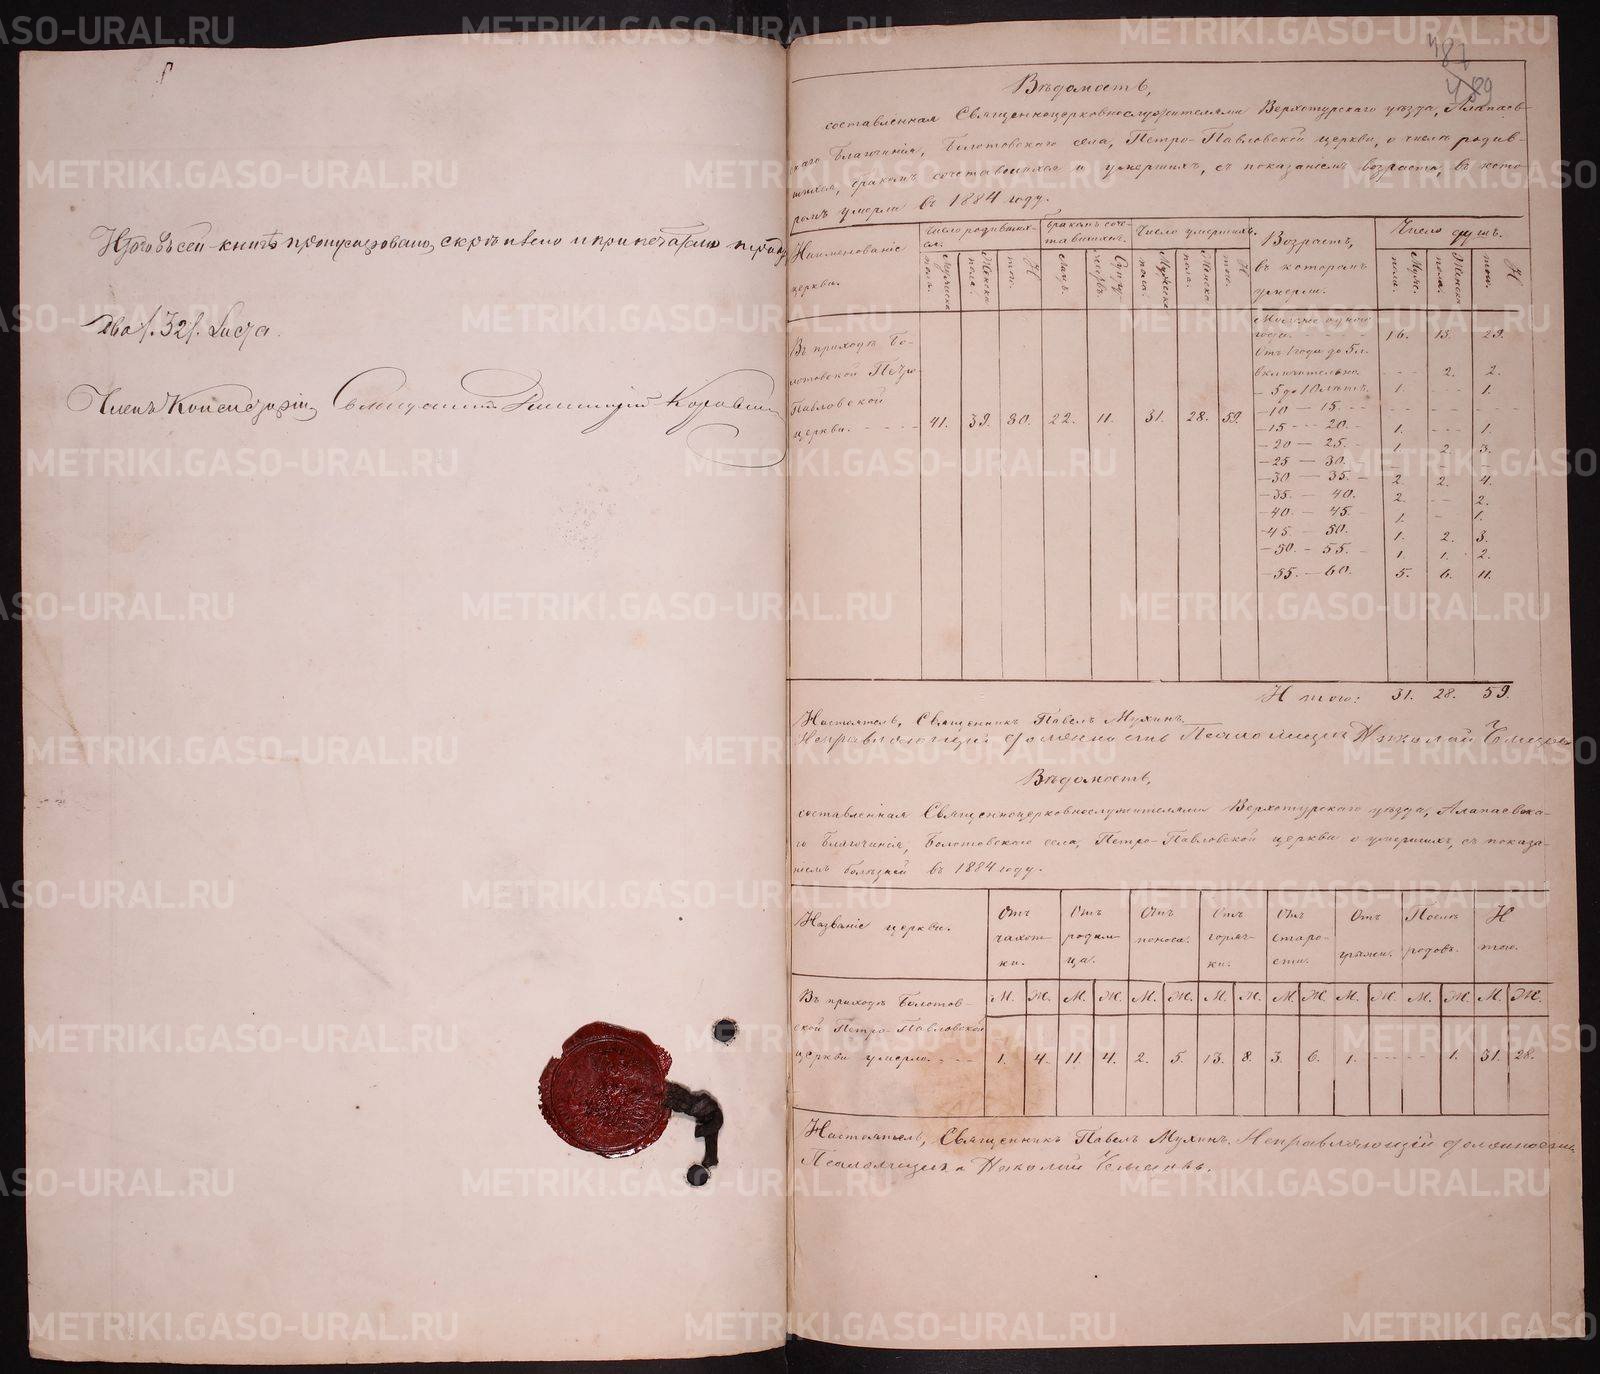 Итого въ сей книгѣ пронумеровано, скрѣплено и припечатано
два /: 32 /: Листа.
Членъ Консисторіи, Священникъ
487
489
Вѣдомость,
составленная Священноцерковнослужителями Верхотурскаго уѣзда, Алапаев-
скаго Благочинія, Болотовскаго села, Петро-Павловской церкви, о числѣ родив-
шихся, бракомъ сочетавшихся и умершихъ, съ показаніемъ возраста, въ кото-
ромъ умерли въ 1884 году.
Наименованіе церкви. Число родивших-ся. Бракомъ соче-тавшихся. Число умершихъ. Возрастъ, въ которомъ умерли. Число душъ.
Мужска пола. Женска пола. И того. Лицъ. Супружествъ. Мужска пола. Женска пола. И того. Муж. пола. Женска пола. И того.
Въ приходѣ Бо-
лотовской Петро-
Павловской
церкви. 41. 39. 80. 22. 11. 31. 28. 59.
Моложе одного
года. 16. 13. 29.
Отъ 1 года до 5 л.
включительно - - - 2. 2.
— 5 до 10 лѣтъ. 1. - - - 1.
— 10 — 15. - - -
— 15 - - - 20. - 1. - - - 1.
— 20 — 25. - 1. 2. 3.
— 25 — 30. - - -
— 30 — 35. - 2. 2. 4.
— 35. — 40. 2. - - 2.
— 40. — 45. - 1. - 1.
— 45. — 50. 1. 2. 3.
— 50. - 55. - 1. 1. 2.
— 55. — 60. 5. 6. 11.
И того: 31. 28. 59.
Настоятель, Священникъ Павелъ Мухинъ.
Исправляющій должность Псаломщика Николай
Вѣдомость,
составленная Священноцерковнослужителями Верхотурскаго уѣзда, Алапаевска-
го Благочинія, Болотовскаго села, Петро-Павловской церкви о умершихъ, съ показа-
ніемъ болѣзней въ 1884 году.
Названіе церкви. Отъ чахот-ки. Отъ родим-ца. Отъ поноса. Отъ горяч-ки. Отъ старо-сти. Отъ грыжи. Послѣ родовъ. И того.
Въ приходѣ Болотов- М. Ж. М. Ж. М. Ж. М. Ж. М. Ж. М. Ж. М. Ж. М. Ж.
ской Петро-Павловской
церкви умерло. - - - 1. 4. 11. 4. 2. 5. 13. 8. 3. 6. 1. - - - - 1. 31. 28.
Настоятель, Священникъ Павелъ Мухинъ. Исправляющій должность
Псаломщика Николай